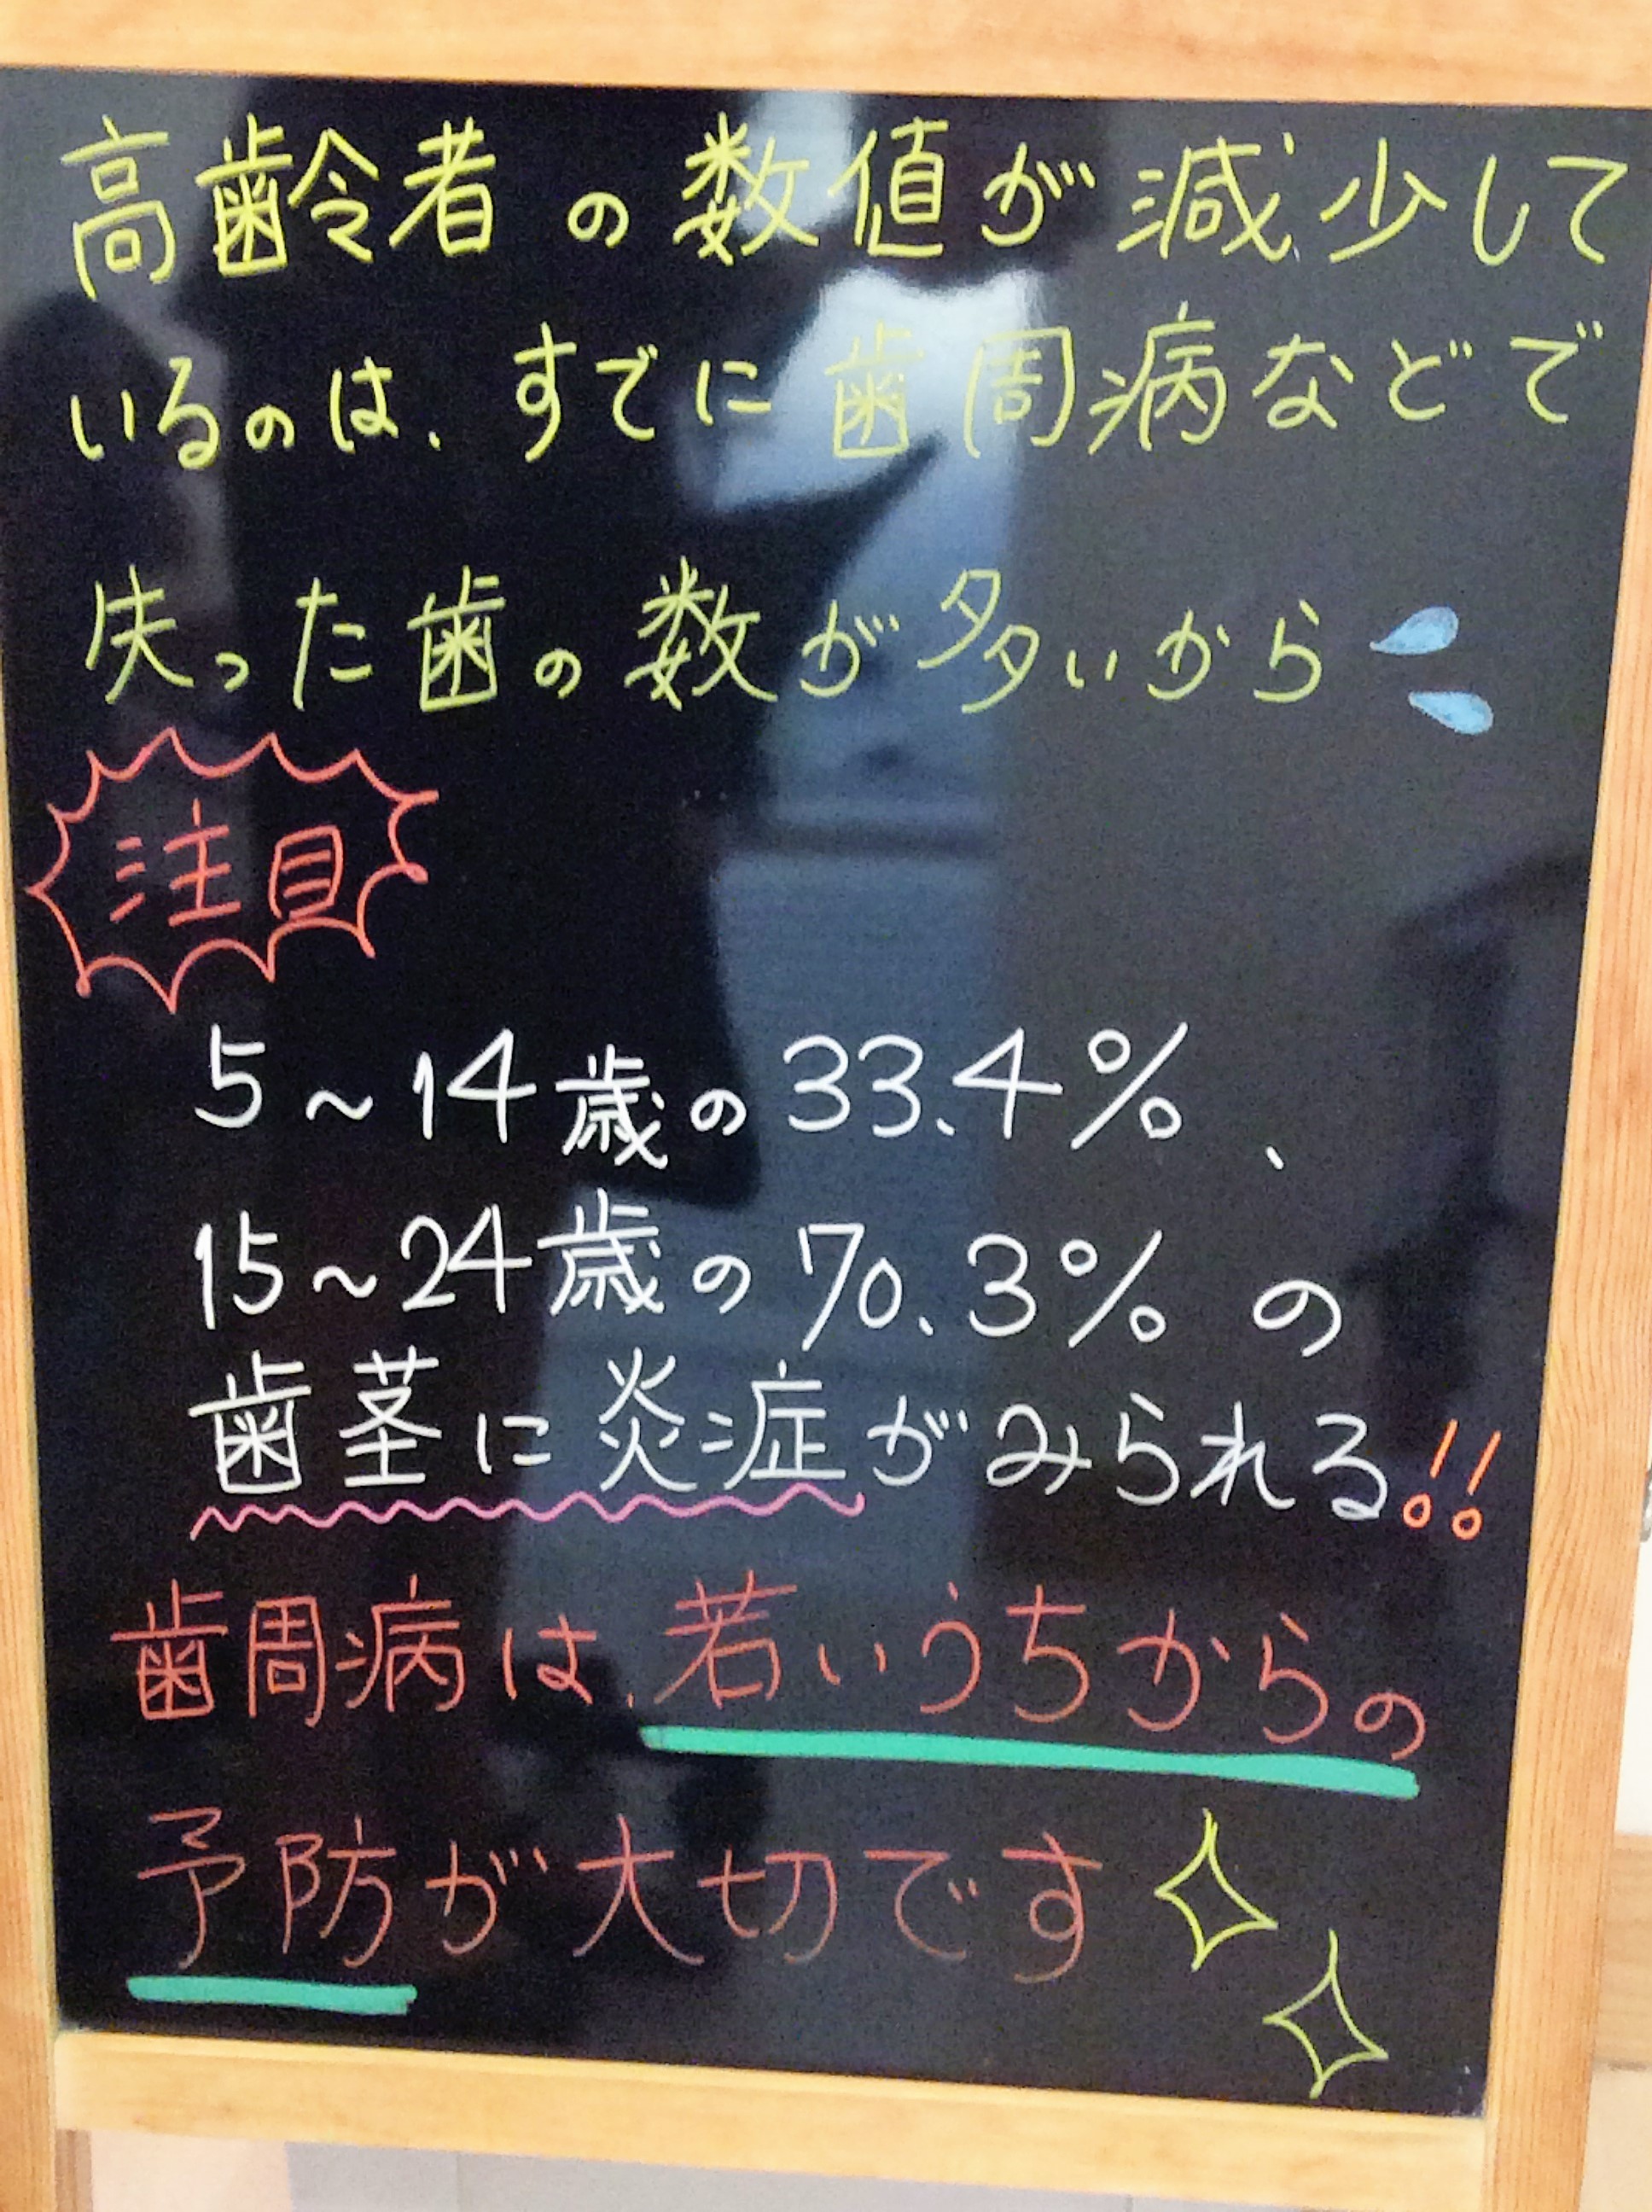 高齢者の数値が減少して
いるのは、すでに歯周病などで
失った歯の数が多いから
注目
5〜14歳の33.4%、
15〜24歳の70.3%の
歯茎に炎症がみられる!!
歯周病は、若いうちからの
予防が大切です